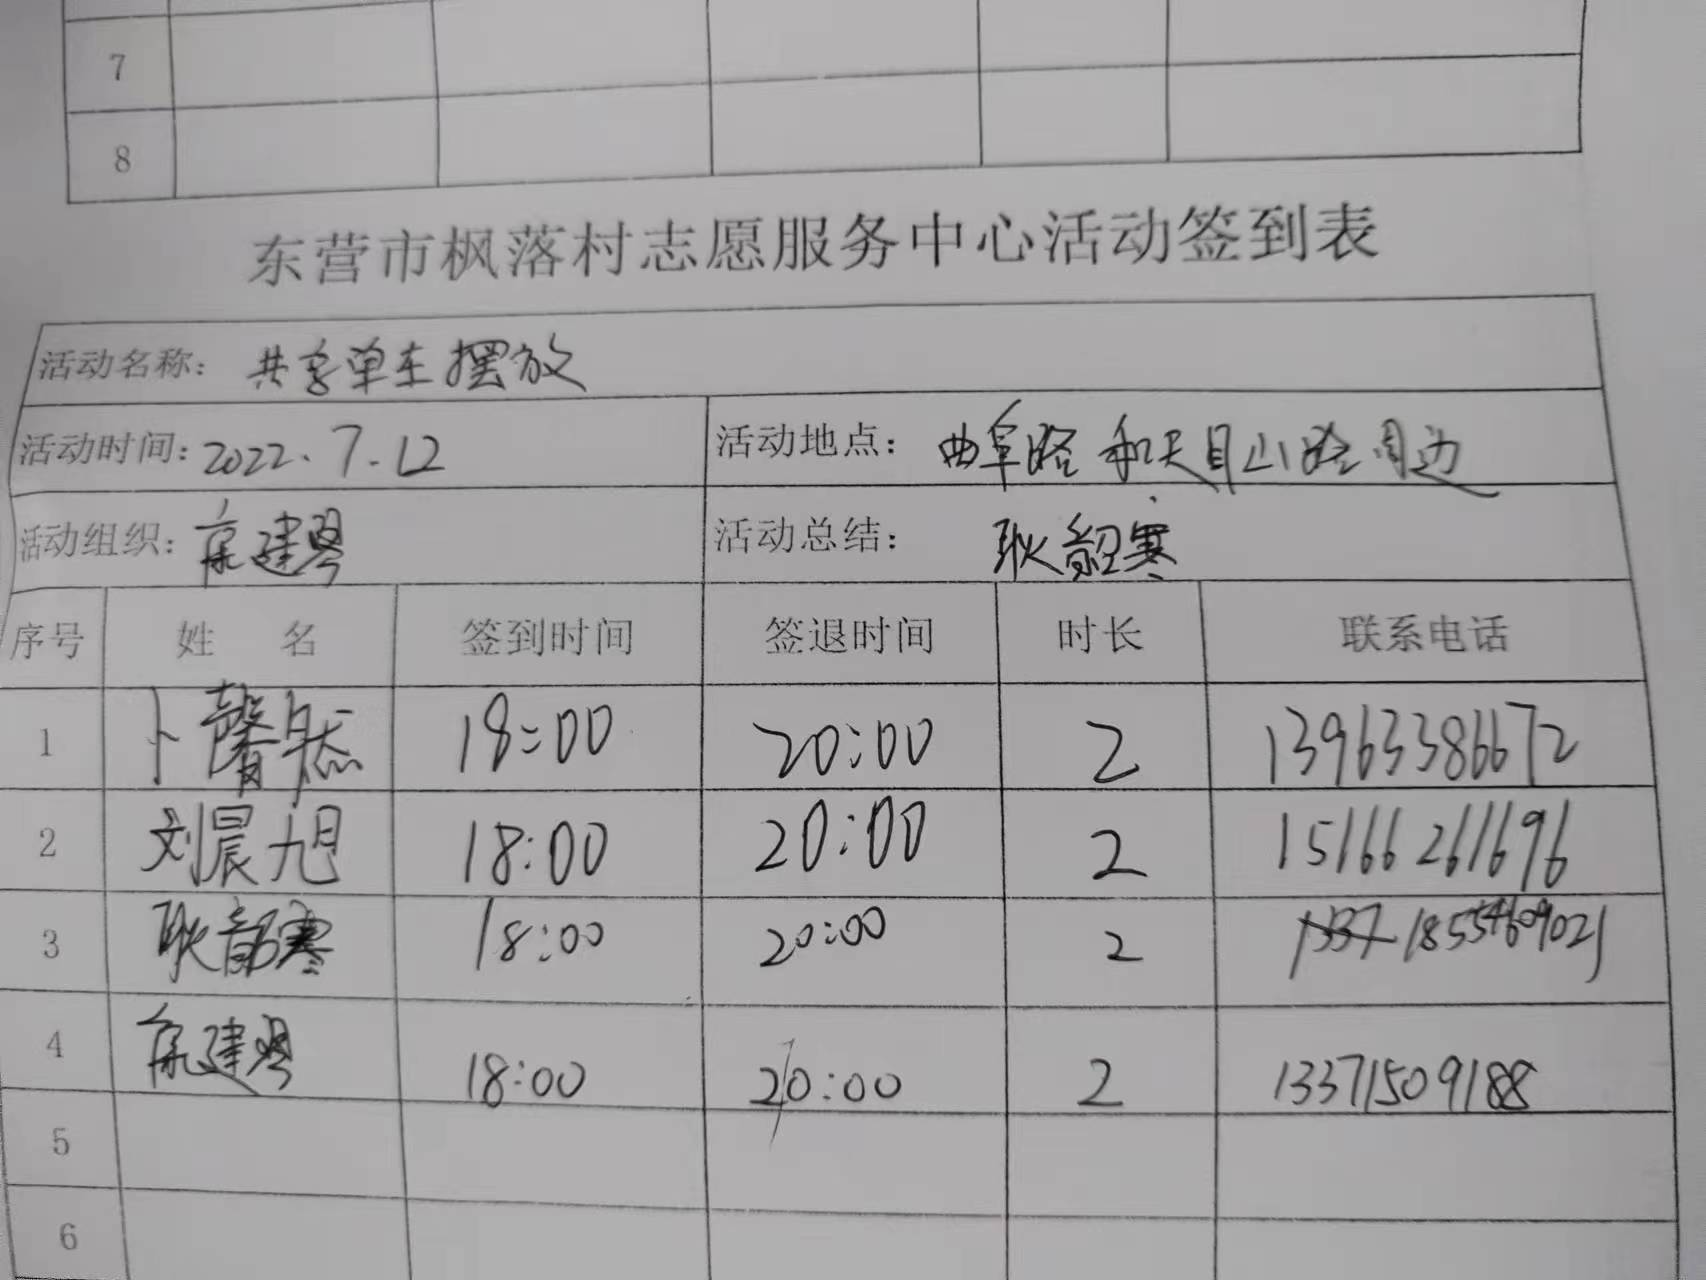 7
8
东营市枫落村志愿服务中心活动签到表
活动名称: 共享单车摆放
活动时间: 2022.7.12 活动地点: 曲阜路和天目山路周边
活动组织: 建琴 活动总结: 耿韶寒
序号 姓 名 签到时间 签退时间 时长 联系电话
1 卜馨然 18:00 20:00 2 13963386672
2 刘晨旭 18:00 20:00 2 15166261696
3 耿韶寒 18:00 20:00 2 18554609021
4 建琴 18:00 20:00 2 13371509188
5
6